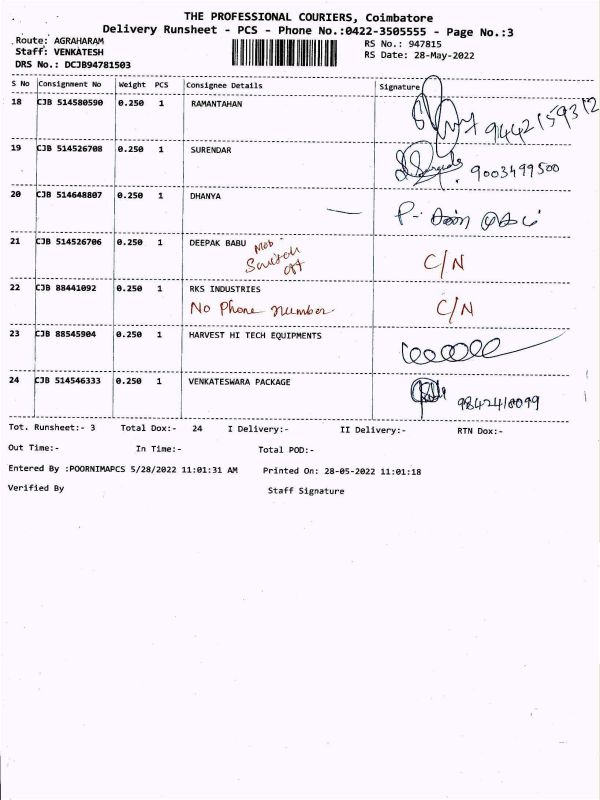 THE PROFESSIONAL COURIERS, Coimbatore
Delivery Runsheet - PCS - Phone No.:0422-3505555 - Page No.:3
Route: AGRAHARAM
RS No.: 947815
Staff: VENKATESH
RS Date: 28-May-2022
DRS No.: DCJB94781503
S No Consignment No Weight PCS Consignee Details Signature
18 CJB 514580590 0.250 1 RAMANTAHAN 9442159312
19 CJB 514526708 0.250 1 SURENDAR 9003499500
20 CJB 514648807 0.250 1 DHANYA
21 CJB 514526706 0.250 1 DEEPAK BABU Mob Switch off C/N
22 CJB 88441092 0.250 1 RKS INDUSTRIES
No Phone number C/N
23 CJB 88545904 0.250 1 HARVEST HI TECH EQUIPMENTS
24 CJB 514546333 0.250 1 VENKATESWARA PACKAGE
Tot. Runsheet:- 3 Total Dox:- 24 I Delivery:- II Delivery:- RTN Dox:-
Out Time:- In Time:- Total POD:-
Entered By :POORNIMAPCS 5/28/2022 11:01:31 AM Printed On: 28-05-2022 11:01:18
Verified By Staff Signature